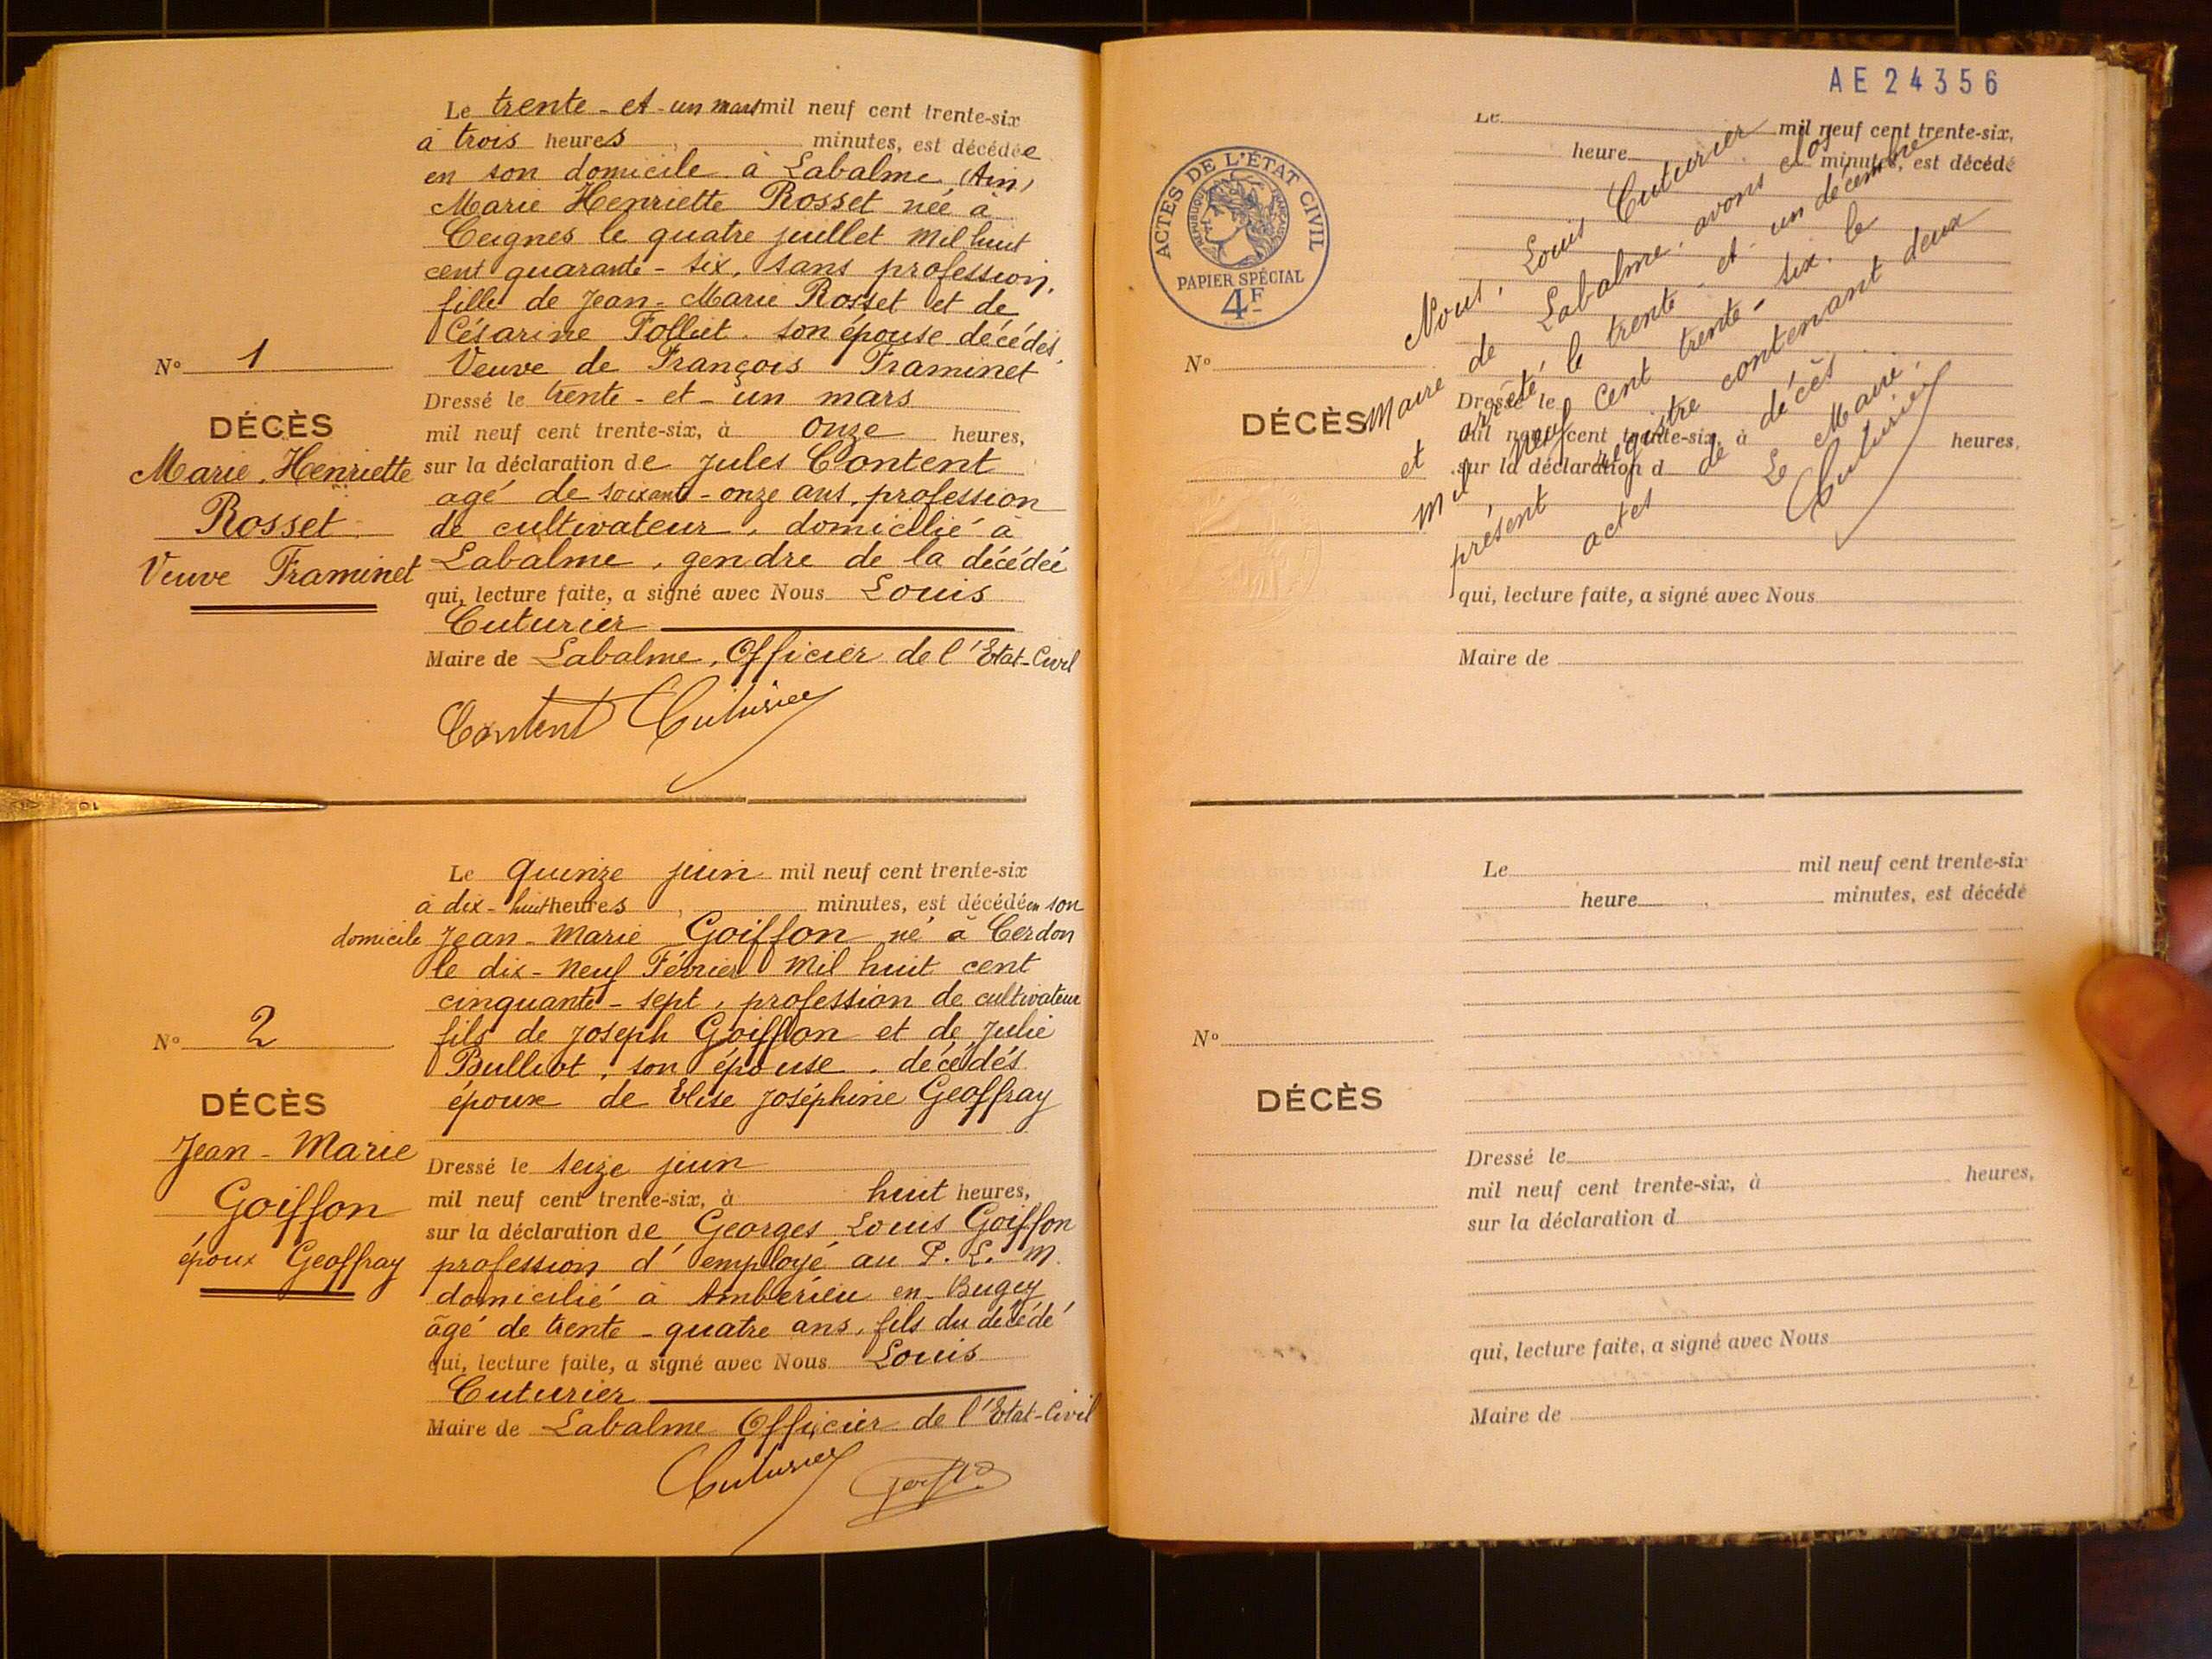 Le trente-et-un mars mil neuf cent trente-six
à trois heures, minutes, est décédée
en son domicile à Labalme (Ain)
Marie Henriette Rosset née à
Ceignes le quatre juillet mil huit
cent quarante-six, sans profession,
fille de Jean-Marie Rosset et de
Césarine Folliet son épouse décédés,
Veuve de François Framinet
Dressé le trente-et-un mars
mil neuf cent trente-six, à onze heures,
sur la déclaration de Jules Content
agé de soixante-onze ans, profession
de cultivateur, domicilié à
Labalme, gendre de la décédée
qui, lecture faite, a signé avec Nous Louis
Cuturier
Maire de Labalme, Officier de l'Etat-Civil
Content Cuturier
No 1
DÉCÈS
Marie, Henriette
Rosset
Veuve Framinet
Le quinze juin mil neuf cent trente-six
à dix-huit heures, minutes, est décédé en son
domicile Jean-Marie Goiffon né à Cerdon
le dix-neuf Février mil huit cent
cinquante-sept, profession de cultivateur
fils de Joseph Goiffon et de Julie
Bulliot, son épouse, décédés
époux de Elise Joséphine Geoffray
Dressé le seize juin
mil neuf cent trente-six, à huit heures,
sur la déclaration de Georges Louis Goiffon
profession d'employé au P. L. M.
domicilié à Ambérieu en-Bugey
âgé de trente-quatre ans, fils du décédé
qui, lecture faite, a signé avec Nous Louis
Cuturier
Maire de Labalme Officier de l'Etat-Civil
Cuturier
No 2
DÉCÈS
Jean-Marie
Goiffon
époux Geoffray
AE24356
ACTES DE L'ÉTAT CIVIL
RÉPUBLIQUE FRANÇAISE
PAPIER SPÉCIAL
4F
Le mil neuf cent trente-six,
heure minutes, est décédé
No
DÉCÈS
Dressé le
mil neuf cent trente-six, à heures,
sur la déclaration d
qui, lecture faite, a signé avec Nous
Maire de
Nous, Louis Cuturier
Maire de Labalme, avons clos
et arrêté le trente-et-un décembre
mil neuf cent trente-six, le
présent registre contenant deux
actes de décès.
Le Maire,
Cuturier
Le mil neuf cent trente-six
heure, minutes, est décédé
No
DÉCÈS
Dressé le
mil neuf cent trente-six, à heures,
sur la déclaration d
qui, lecture faite, a signé avec Nous
Maire de